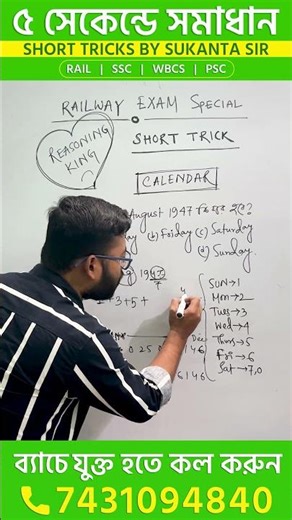 ৫ সেকেন্ডে সমাধান
SHORT TRICKS BY SUKANTA SIR
RAIL | SSC | WBCS | PSC
RAILWAY EXAM SPECIAL
REASONING KING
SHORT TRICK
CALENDAR
August 1947 কি বার হবে?
(b) Friday (c) Saturday
(d) Sunday
1947
3+5+
4
SUN→1
Mon→2
Tues→3
Wed→4
Thurs→5
Fri→6
Sat→7,0
Dec
0 25 0 146
6146
ব্যাচে যুক্ত হতে কল করুন
7431094840